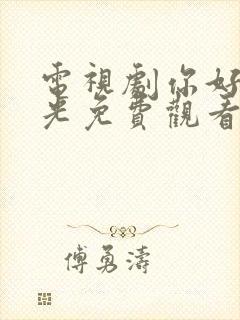 電視劇你好
光免費觀看
傅勇濤